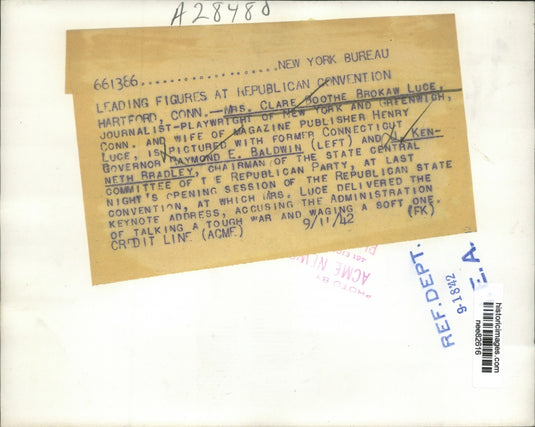 A28480
661386.....................NEW YORK BUREAU
LEADING FIGURES AT REPUBLICAN CONVENTION
HARTFORD, CONN.—MRS. CLARE BOOTHE BROKAW LUCE,
JOURNALIST-PLAYWRIGHT OF NEW YORK AND GREENWICH,
CONN. AND WIFE OF MAGAZINE PUBLISHER HENRY
LUCE, IS PICTURED WITH FORMER CONNECTICUT
GOVERNOR RAYMOND E. BALDWIN (LEFT) AND J. KEN-
NETH BRADLEY, CHAIRMAN OF THE STATE CENTRAL
COMMITTEE OF T E REPUBLICAN PARTY, AT LAST
NIGHT'S OPENING SESSION OF THE REPUBLICAN STATE
CONVENTION, AT WHICH MRS. LUCE DELIVERED THE
KEYNOTE ADDRESS, ACCUSING THE ADMINISTRATION
OF TALKING A TOUGH WAR AND WAGING A SOFT ONE.
CREDIT LINE (ACME) 9/11/42 (FK)
PHOTO BY
ACME NEW
REF. DEPT.
9-18-42
E.A.
historicimages.com
nee82616